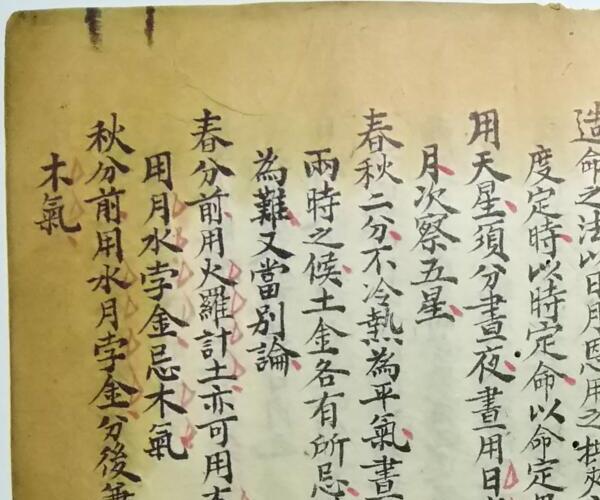 造命之法以日月恩用之拱夾
度定時以時定命以命定
用天星須分晝夜晝用日
月次察五星
春秋二分不冷熱為平氣書
兩時之候土金各有所忌
為難又當別論
春分前用火羅計土亦可用
用月水孛金忌木氣
秋分前用水月孛金分後兼
木氣